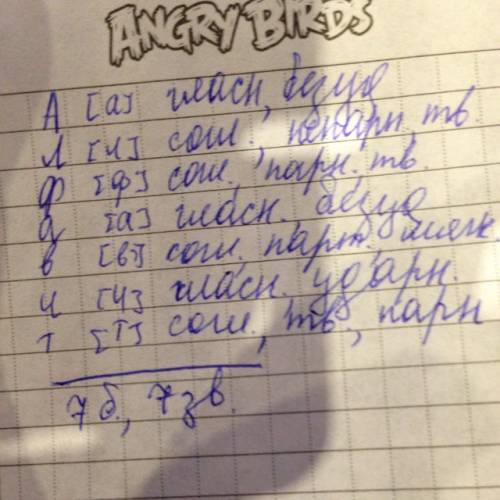 ANGRY BIRDS
А [а] гласн, безуд
л [л] согл., непарн, тв.
ф [ф] согл., парн. тв.
а [а] гласн. безуд
в [в] согл. парн. мягк
и [и] гласн. ударн.
т [т] согл., тв., парн
7 б., 7 зв.